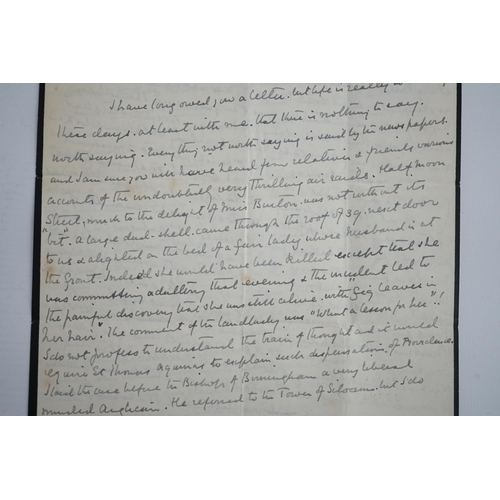 I have long owed you a letter. but life is really so
these days. at least with me. that there is nothing to say.
worth saying. Everything not worth saying is said by the newspapers.
and I am sure you will have heard from relatives & friends various
accounts of the undoubtedly very thrilling air raids. Half moon
Street, much to the delight of Miss Burton, was not without its
"bit". A large dud-shell came through the roof of 39. next door
to us & alighted on the bed of a fair lady whose husband is at
the front. Indeed she would have been killed except that she
was committing adultery that evening & the incident led to
the painful discovery that she was still alive. with "fig leaves in
her hair". The comment of the landlady was "What a lesson for her"!
I do not profess to understand the train of thought and it would
require St Thomas Aquinas to explain such dispensation of Providence.
I laid the case before the Bishop of Birmingham a very liberal
minded Anglican. He referred to the Tower of Siloam. but I do